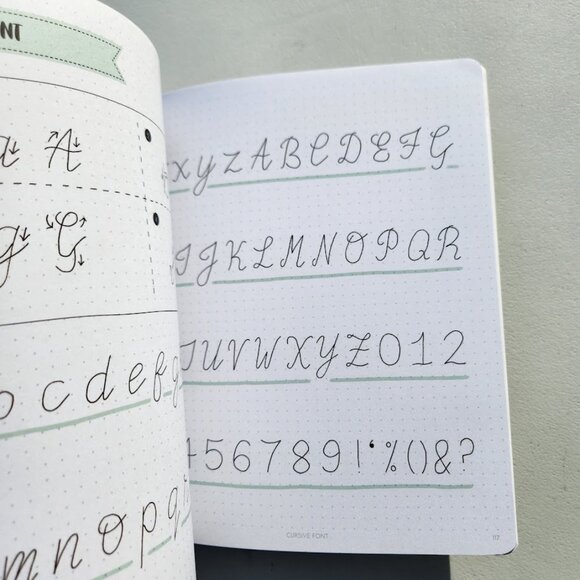 NT
a A
g G
c d e f g
m n o p q
x y z A B C D E F G
I J K L M N O P Q R
T U V W X Y Z 0 1 2
4 5 6 7 8 9 ! ‘ % ( ) & ?
CURSIVE FONT 117